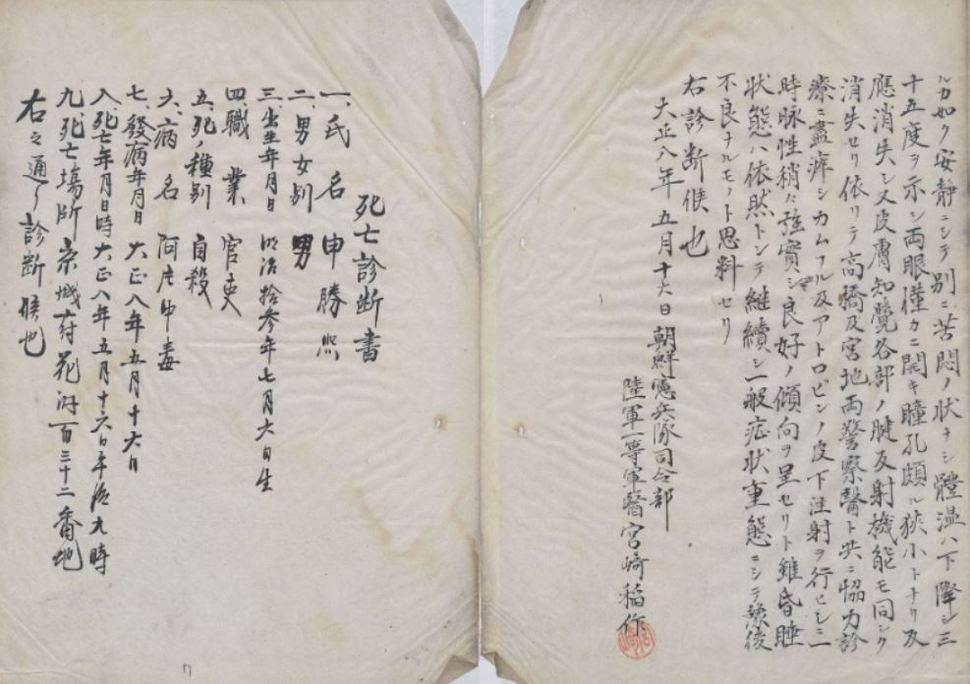 ルカ如ク安静ニシテ別ニ苦悶ノ状ナシ體温ハ下降シ三
十五度ヲ示シ両眼僅カニ開キ瞳孔頗ル狭小トナリ反
應消失シ又皮膚知覺各部ノ腱反射機能モ同シク
消失セリ依リテ高橋及宮地両警察醫ト共ニ協力診
療ニ盡瘁シカムフル及アトロピンノ皮下注射ヲ行ヒシニ一
時脉性稍々強實シ良好ノ傾向ヲ呈セリト雖昏睡
状態ハ依然トシテ継續シ一般症状重態ニシテ豫後
不良ナルモノト思料セリ
右診断候也
大正八年五月十六日
朝鮮憲兵隊司令部
陸軍一等軍醫宮崎稲作
死亡診断書
一、氏名 申勝熙
二、男女別 男
三、出生年月日 明治拾参年七月六日生
四、職業 官吏
五、死ノ種別 自殺
六、病名 阿片中毒
七、發病年月日 大正八年五月十六日
八、死亡年月日時 大正八年五月十六日午后九時
九、死亡場所 京城府花洞百三十二番地
右之通り診断候也